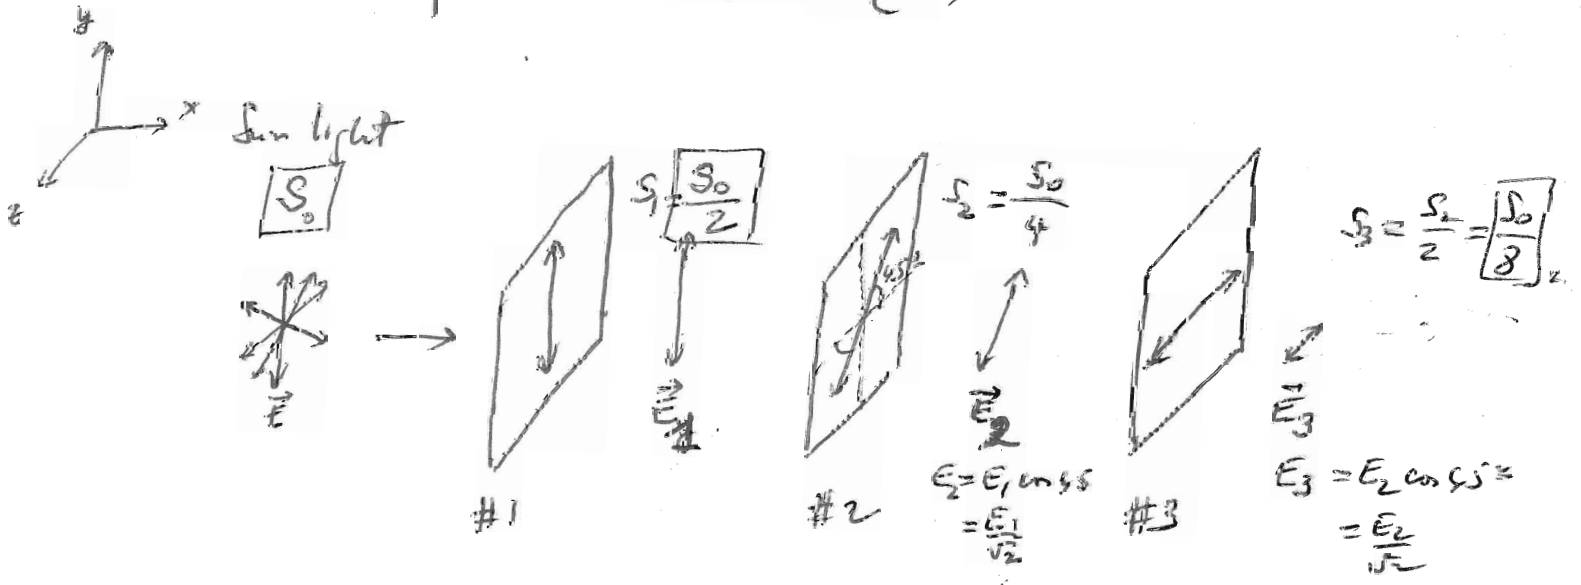 y
x
z
Sun light
S₀
E⃗
#1
S₁ = S₀/2
E⃗₁
45°
#2
S₂ = S₀/4
E⃗₂
E₂ = E₁ cos 45
= E₁/√2
#3
S₃ = S₂/2 = S₀/8
E⃗₃
E₃ = E₂ cos 45 =
= E₂/√2